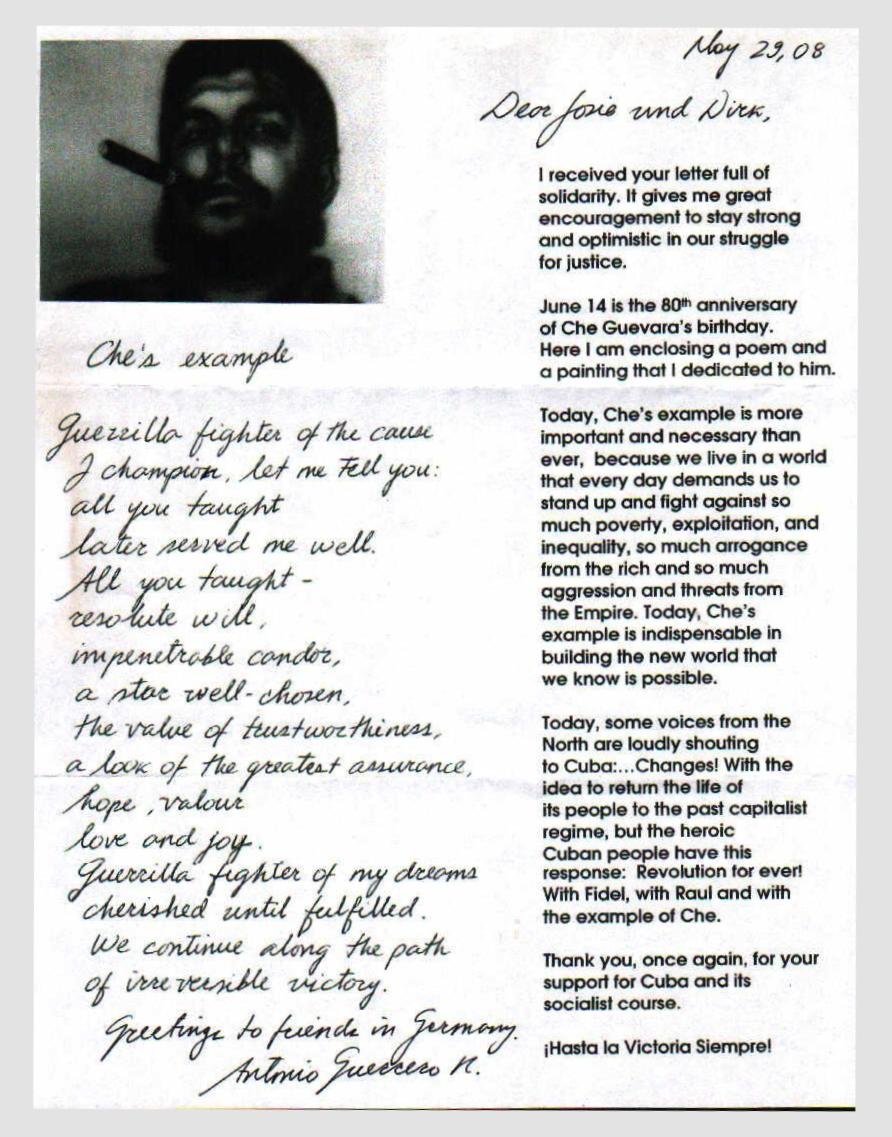 May 29, 08
Dear Josie und Dirk,
I received your letter full of
solidarity. It gives me great
encouragement to stay strong
and optimistic in our struggle
for justice.
June 14 is the 80th anniversary
of Che Guevara's birthday.
Here I am enclosing a poem and
a painting that I dedicated to him.
Today, Che's example is more
important and necessary than
ever, because we live in a world
that every day demands us to
stand up and fight against so
much poverty, exploitation, and
inequality, so much arrogance
from the rich and so much
aggression and threats from
the Empire. Today, Che's
example is indispensable in
building the new world that
we know is possible.
Today, some voices from the
North are loudly shouting
to Cuba:...Changes! With the
idea to return the life of
its people to the past capitalist
regime, but the heroic
Cuban people have this
response: Revolution for ever!
With Fidel, with Raul and with
the example of Che.
Thank you, once again, for your
support for Cuba and its
socialist course.
¡Hasta la Victoria Siempre!
Che's example
Guerrilla fighter of the cause
I champion, let me tell you:
all you taught
later served me well.
All you taught -
resolute will,
impenetrable candor,
a star well-chosen,
the value of trustworthiness,
a look of the greatest assurance,
hope, valour
love and joy.
Guerrilla fighter of my dreams
cherished until fulfilled.
We continue along the path
of irreversible victory.
Greetings to friends in Germany.
Antonio Guerrero R.